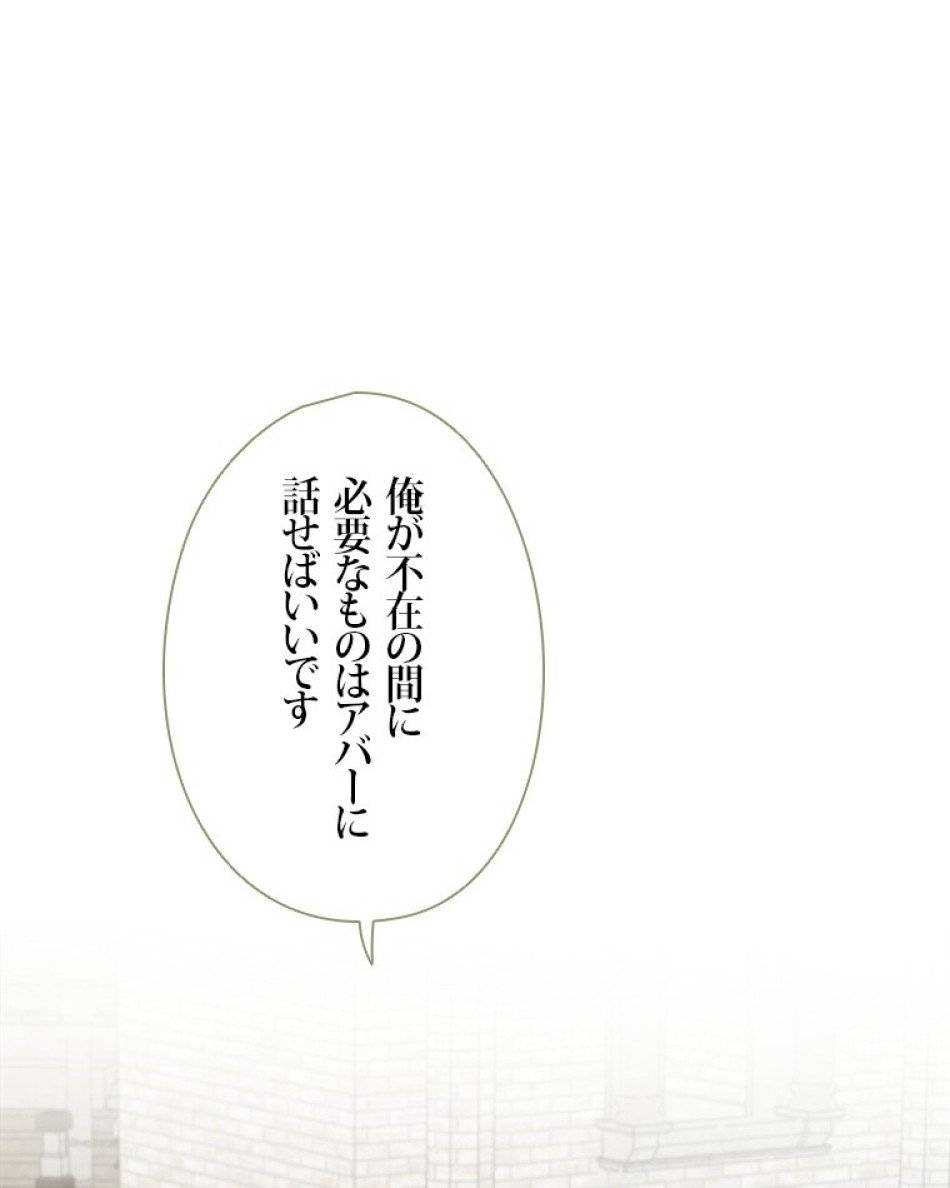 俺が不在の間に
必要なものはアバーに
話せばいいです